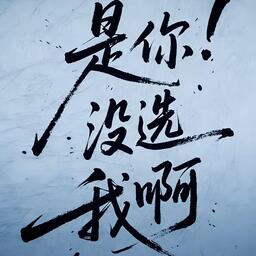 是你!
没选
我啊